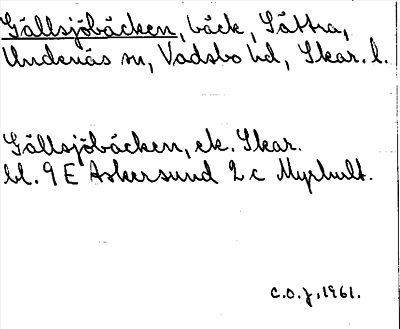 Gällsjöbäcken, bäck, Sättra,
Undenäs sn, Vadsbo hd, Skar. l.
Gällsjöbäcken, ek. Skar.
bl. 9 E Askersund 2 c Myrhult.
C.O.J, 1961.